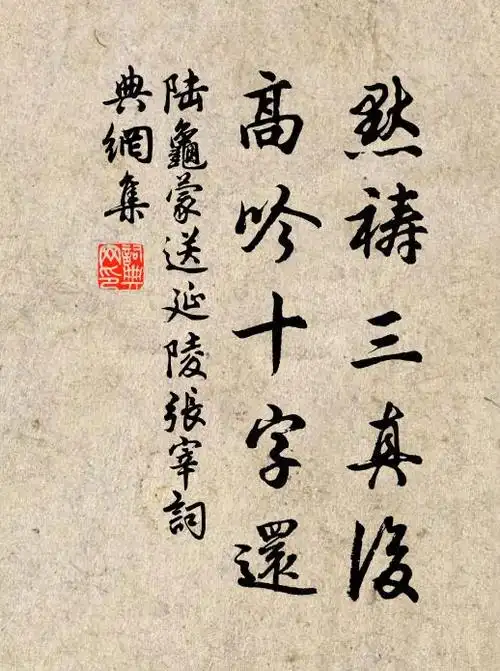 默祷三真後
高吟十字還
陆龜蒙送延陵張宰詞
典網集
詞典网印